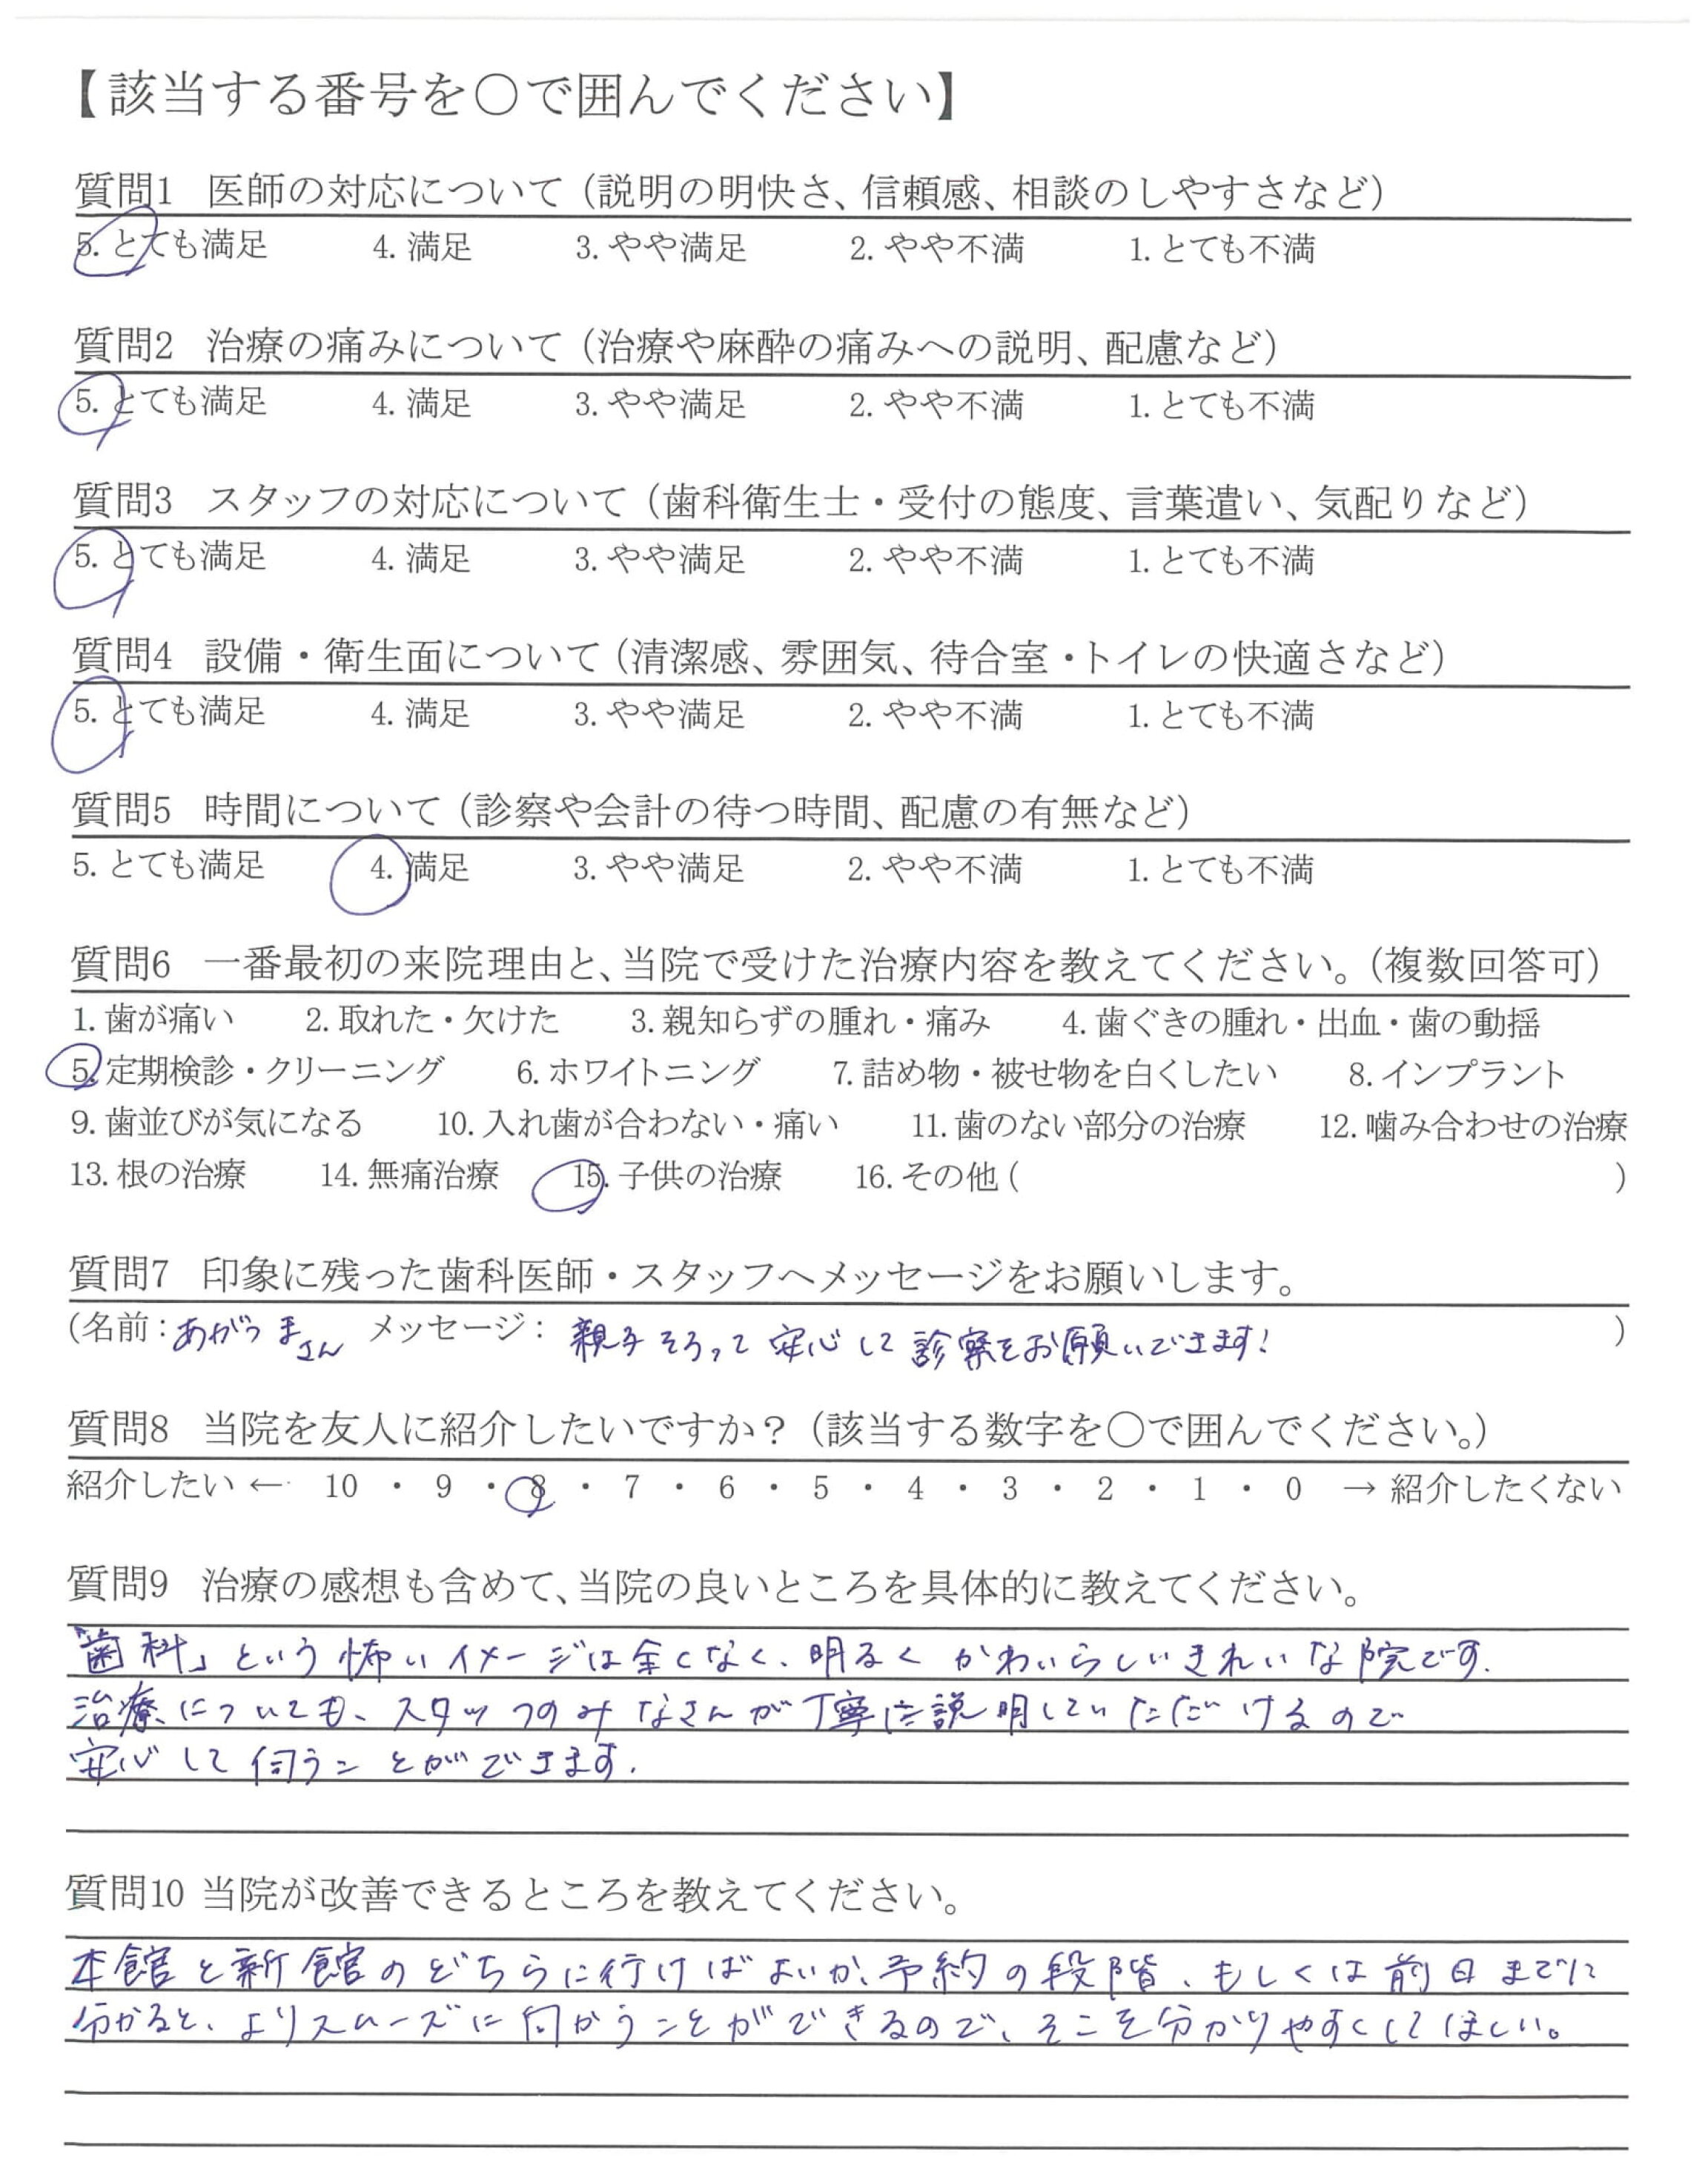 【該当する番号を○で囲んでください】
質問1 医師の対応について（説明の明快さ、信頼感、相談のしやすさなど）
5. とても満足 4. 満足 3. やや満足 2. やや不満 1. とても不満
質問2 治療の痛みについて（治療や麻酔の痛みへの説明、配慮など）
5. とても満足 4. 満足 3. やや満足 2. やや不満 1. とても不満
質問3 スタッフの対応について（歯科衛生士・受付の態度、言葉遣い、気配りなど）
5. とても満足 4. 満足 3. やや満足 2. やや不満 1. とても不満
質問4 設備・衛生面について（清潔感、雰囲気、待合室・トイレの快適さなど）
5. とても満足 4. 満足 3. やや満足 2. やや不満 1. とても不満
質問5 時間について（診察や会計の待つ時間、配慮の有無など）
5. とても満足 4. 満足 3. やや満足 2. やや不満 1. とても不満
質問6 一番最初の来院理由と、当院で受けた治療内容を教えてください。（複数回答可）
1. 歯が痛い 2. 取れた・欠けた 3. 親知らずの腫れ・痛み 4. 歯ぐきの腫れ・出血・歯の動揺
5. 定期検診・クリーニング 6. ホワイトニング 7. 詰め物・被せ物を白くしたい 8. インプラント
9. 歯並びが気になる 10. 入れ歯が合わない・痛い 11. 歯のない部分の治療 12. 噛み合わせの治療
13. 根の治療 14. 無痛治療 15. 子供の治療 16. その他（ ）
質問7 印象に残った歯科医師・スタッフへメッセージをお願いします。
（名前：あがつまさん メッセージ：親子そろって安心して診察をお願いできます！）
質問8 当院を友人に紹介したいですか？（該当する数字を○で囲んでください。）
紹介したい ← 10 ・ 9 ・ 8 ・ 7 ・ 6 ・ 5 ・ 4 ・ 3 ・ 2 ・ 1 ・ 0 → 紹介したくない
質問9 治療の感想も含めて、当院の良いところを具体的に教えてください。
「歯科」という怖いイメージは全くなく、明るくかわいらしいきれいな院です。
治療についても、スタッフのみなさんが丁寧に説明していただけるので
安心して伺うことができます。
質問10 当院が改善できるところを教えてください。
本館と新館のどちらに行けばよいか、予約の段階、もしくは前日までに
分かると、よりスムーズに向かうことができるので、そこを分かりやすくしてほしい。